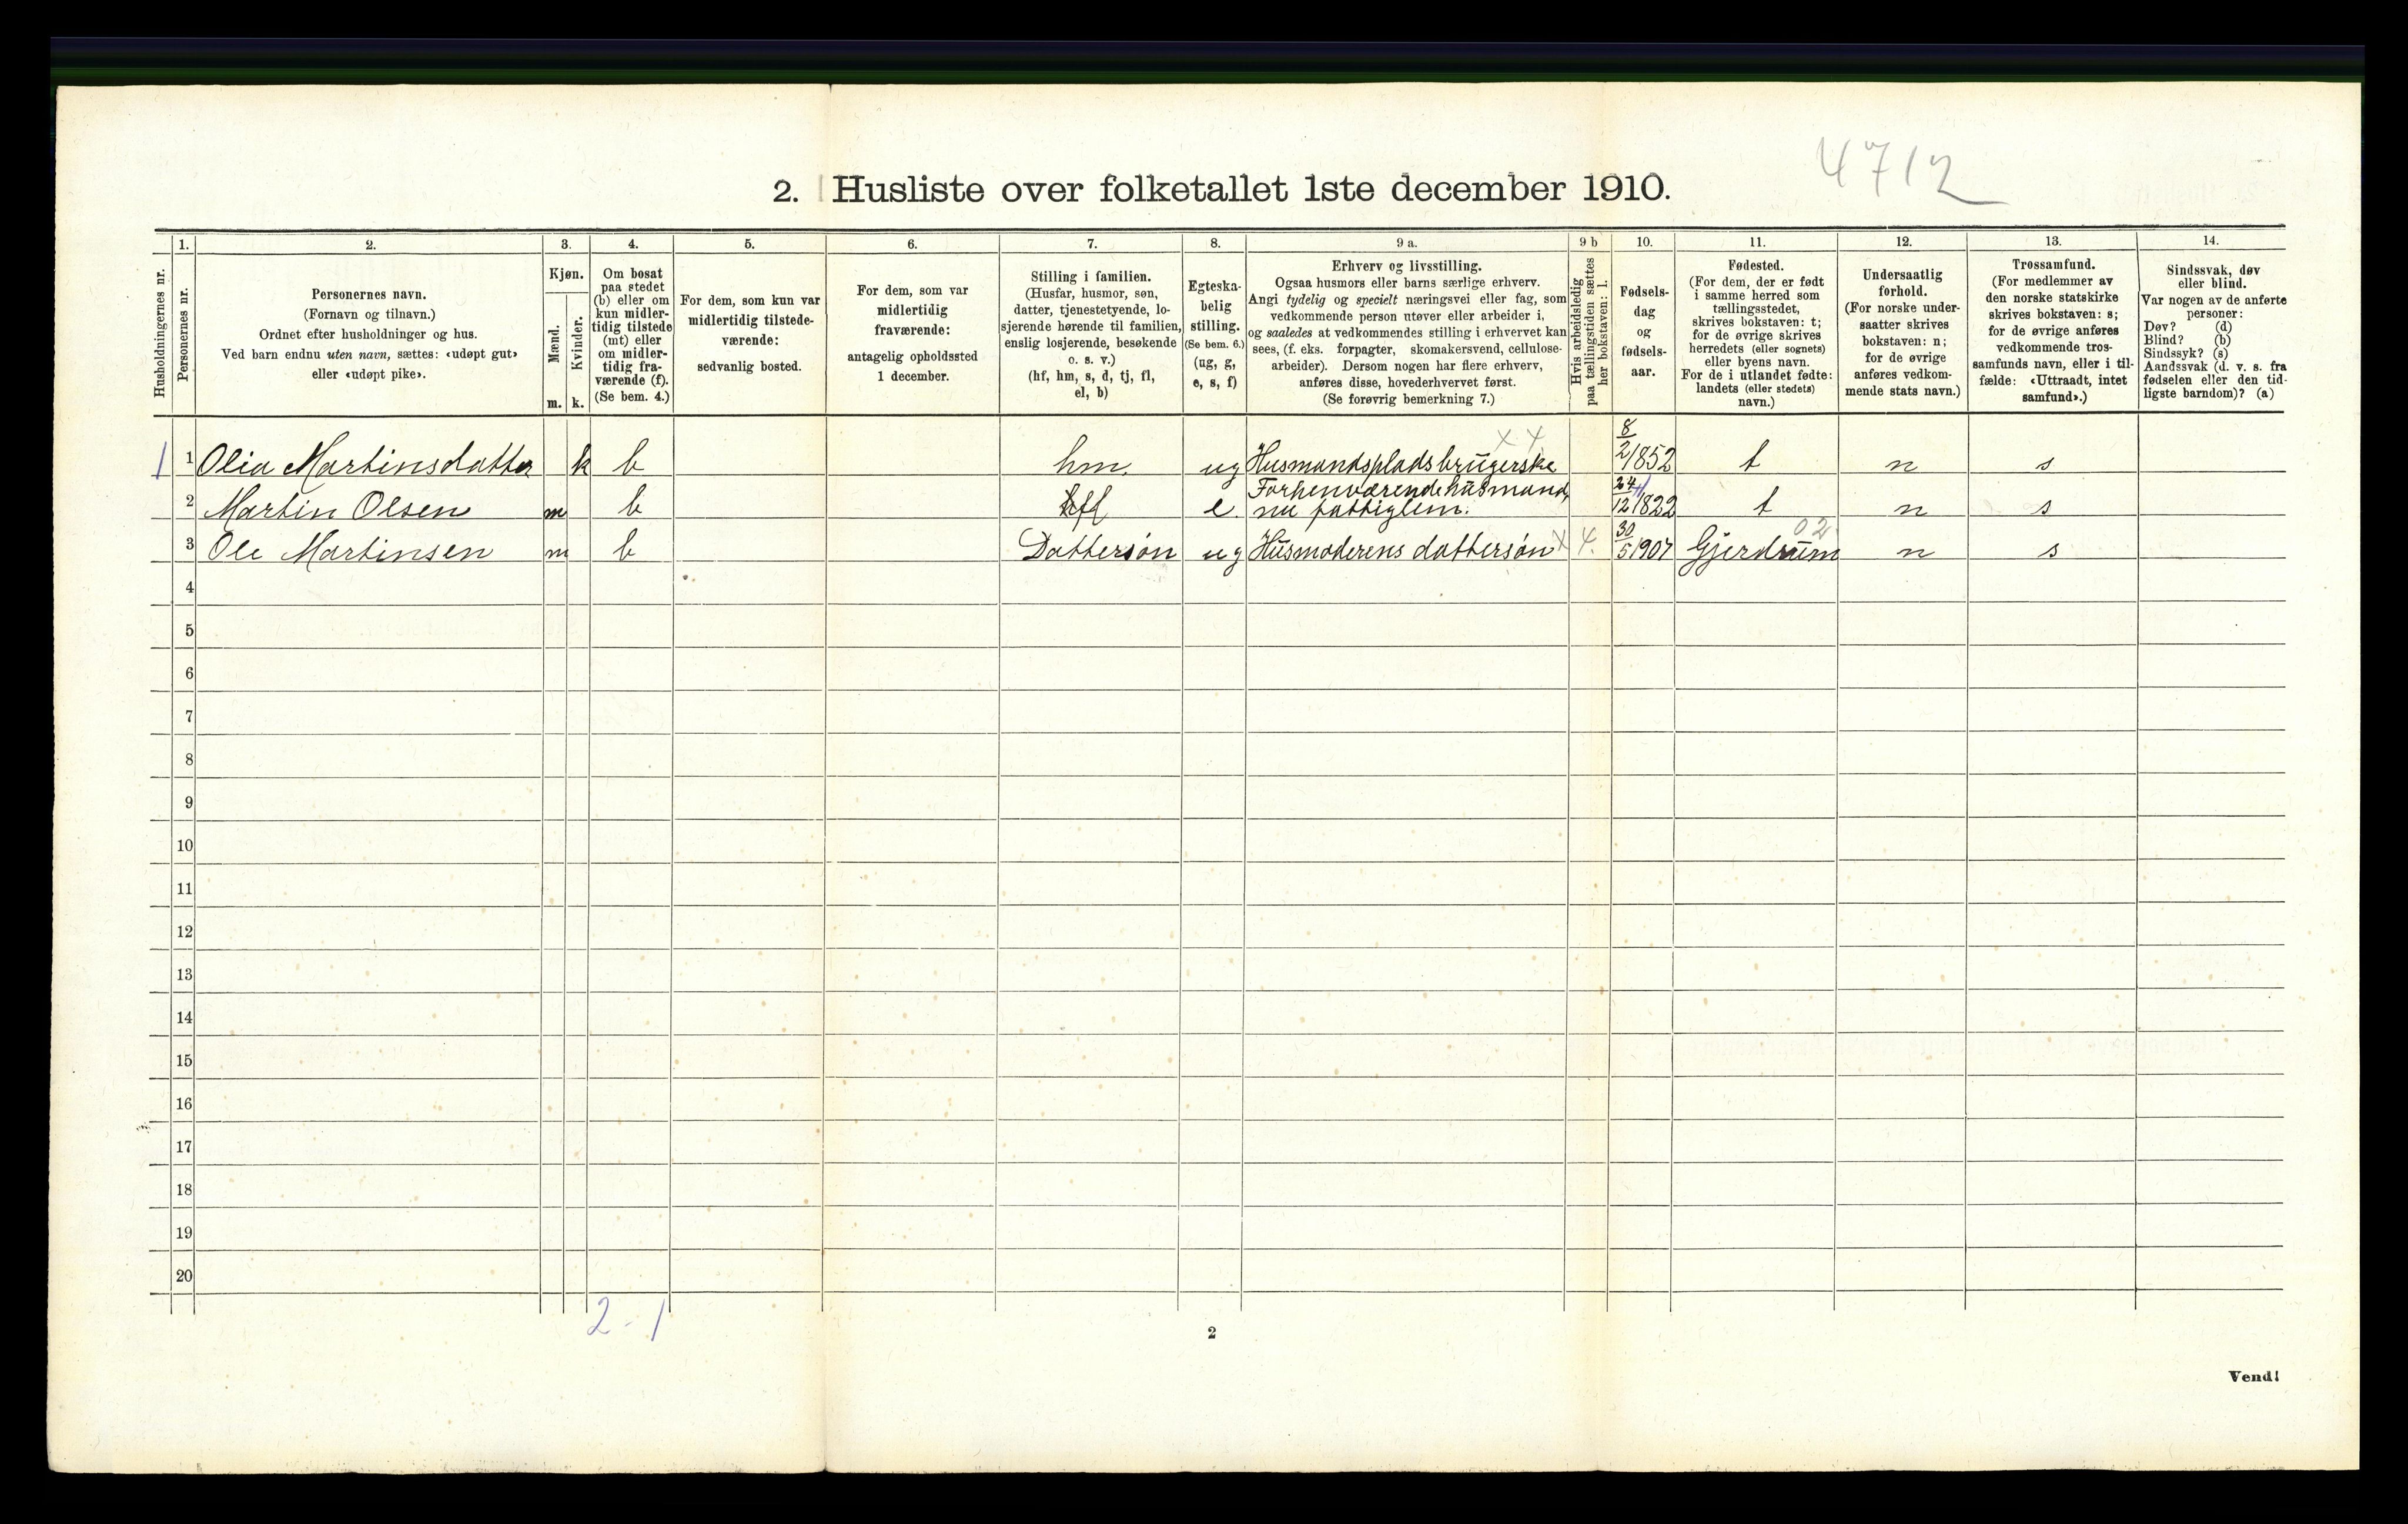 4712
2. Husliste over folketallet 1ste december 1910.
1. 2. 3. 4. 5. 6. 7. 8. 9 a. 9 b 10. 11. 12. 13. 14.
Husholdningernes nr.
Personernes nr.
Personernes navn.
(Fornavn og tilnavn.)
Ordnet efter husholdninger og hus.
Ved barn endnu uten navn, sættes: «udøpt gut»
eller «udøpt pike».
Kjøn.
Mænd.
Kvinder.
m. k.
Om bosat
paa stedet
(b) eller om
kun midler-
tidig tilstede
(mt) eller
om midler-
tidig fra-
værende (f).
(Se bem. 4.)
For dem, som kun var
midlertidig tilstede-
værende:
sedvanlig bosted.
For dem, som var
midlertidig
fraværende:
antagelig opholdssted
1 december.
Stilling i familien.
(Husfar, husmor, søn,
datter, tjenestetyende, lo-
sjerende hørende til familien,
enslig losjerende, besøkende
o. s. v.)
(hf, hm, s, d, tj, fl,
el, b)
Egteska-
belig
stilling.
(Se bem. 6.)
(ug, g,
e, s, f)
Erhverv og livsstilling.
Ogsaa husmors eller barns særlige erhverv.
Angi tydelig og specielt næringsvei eller fag, som
vedkommende person utøver eller arbeider i,
og saaledes at vedkommendes stilling i erhvervet kan
sees, (f. eks. forpagter, skomakersvend, cellulose-
arbeider). Dersom nogen har flere erhverv,
anføres disse, hovederhvervet først.
(Se forøvrig bemerkning 7.)
Hvis arbeidsledig
paa tællingstiden sættes
her bokstaven: l.
Fødsels-
dag
og
fødsels-
aar.
Fødested.
(For dem, der er født
i samme herred som
tællingsstedet,
skrives bokstaven: t;
for de øvrige skrives
herredets (eller sognets)
eller byens navn.
For de i utlandet fødte:
landets (eller stedets)
navn.)
Undersaatlig
forhold.
(For norske under-
saatter skrives
bokstaven: n;
for de øvrige
anføres vedkom-
mende stats navn.)
Trossamfund.
(For medlemmer av
den norske statskirke
skrives bokstaven: s;
for de øvrige anføres
vedkommende tros-
samfunds navn, eller i til-
fælde: «Uttraadt, intet
samfund».)
Sindssvak, døv
eller blind.
Var nogen av de anførte
personer:
Døv? (d)
Blind? (b)
Sindssyk? (s)
Aandssvak (d. v. s. fra
fødselen eller den tid-
ligste barndom)? (a)
1 1 Olia Martinsdatter k b hm. ug Husmandspladsbrugerske 8/2 1852 t n s
2 Martin Olsen m b fl e. Forhenværende husmand,
nu fattiglem. 24/12 1822 t n s
3 Ole Martinsen m b Dattersøn ug Husmoderens dattersøn 30/5 1907 Gjerdrum 02 n s
4
5
6
7
8
9
10
11
12
13
14
15
16
17
18
19
20
2 - 1
2
Vend!